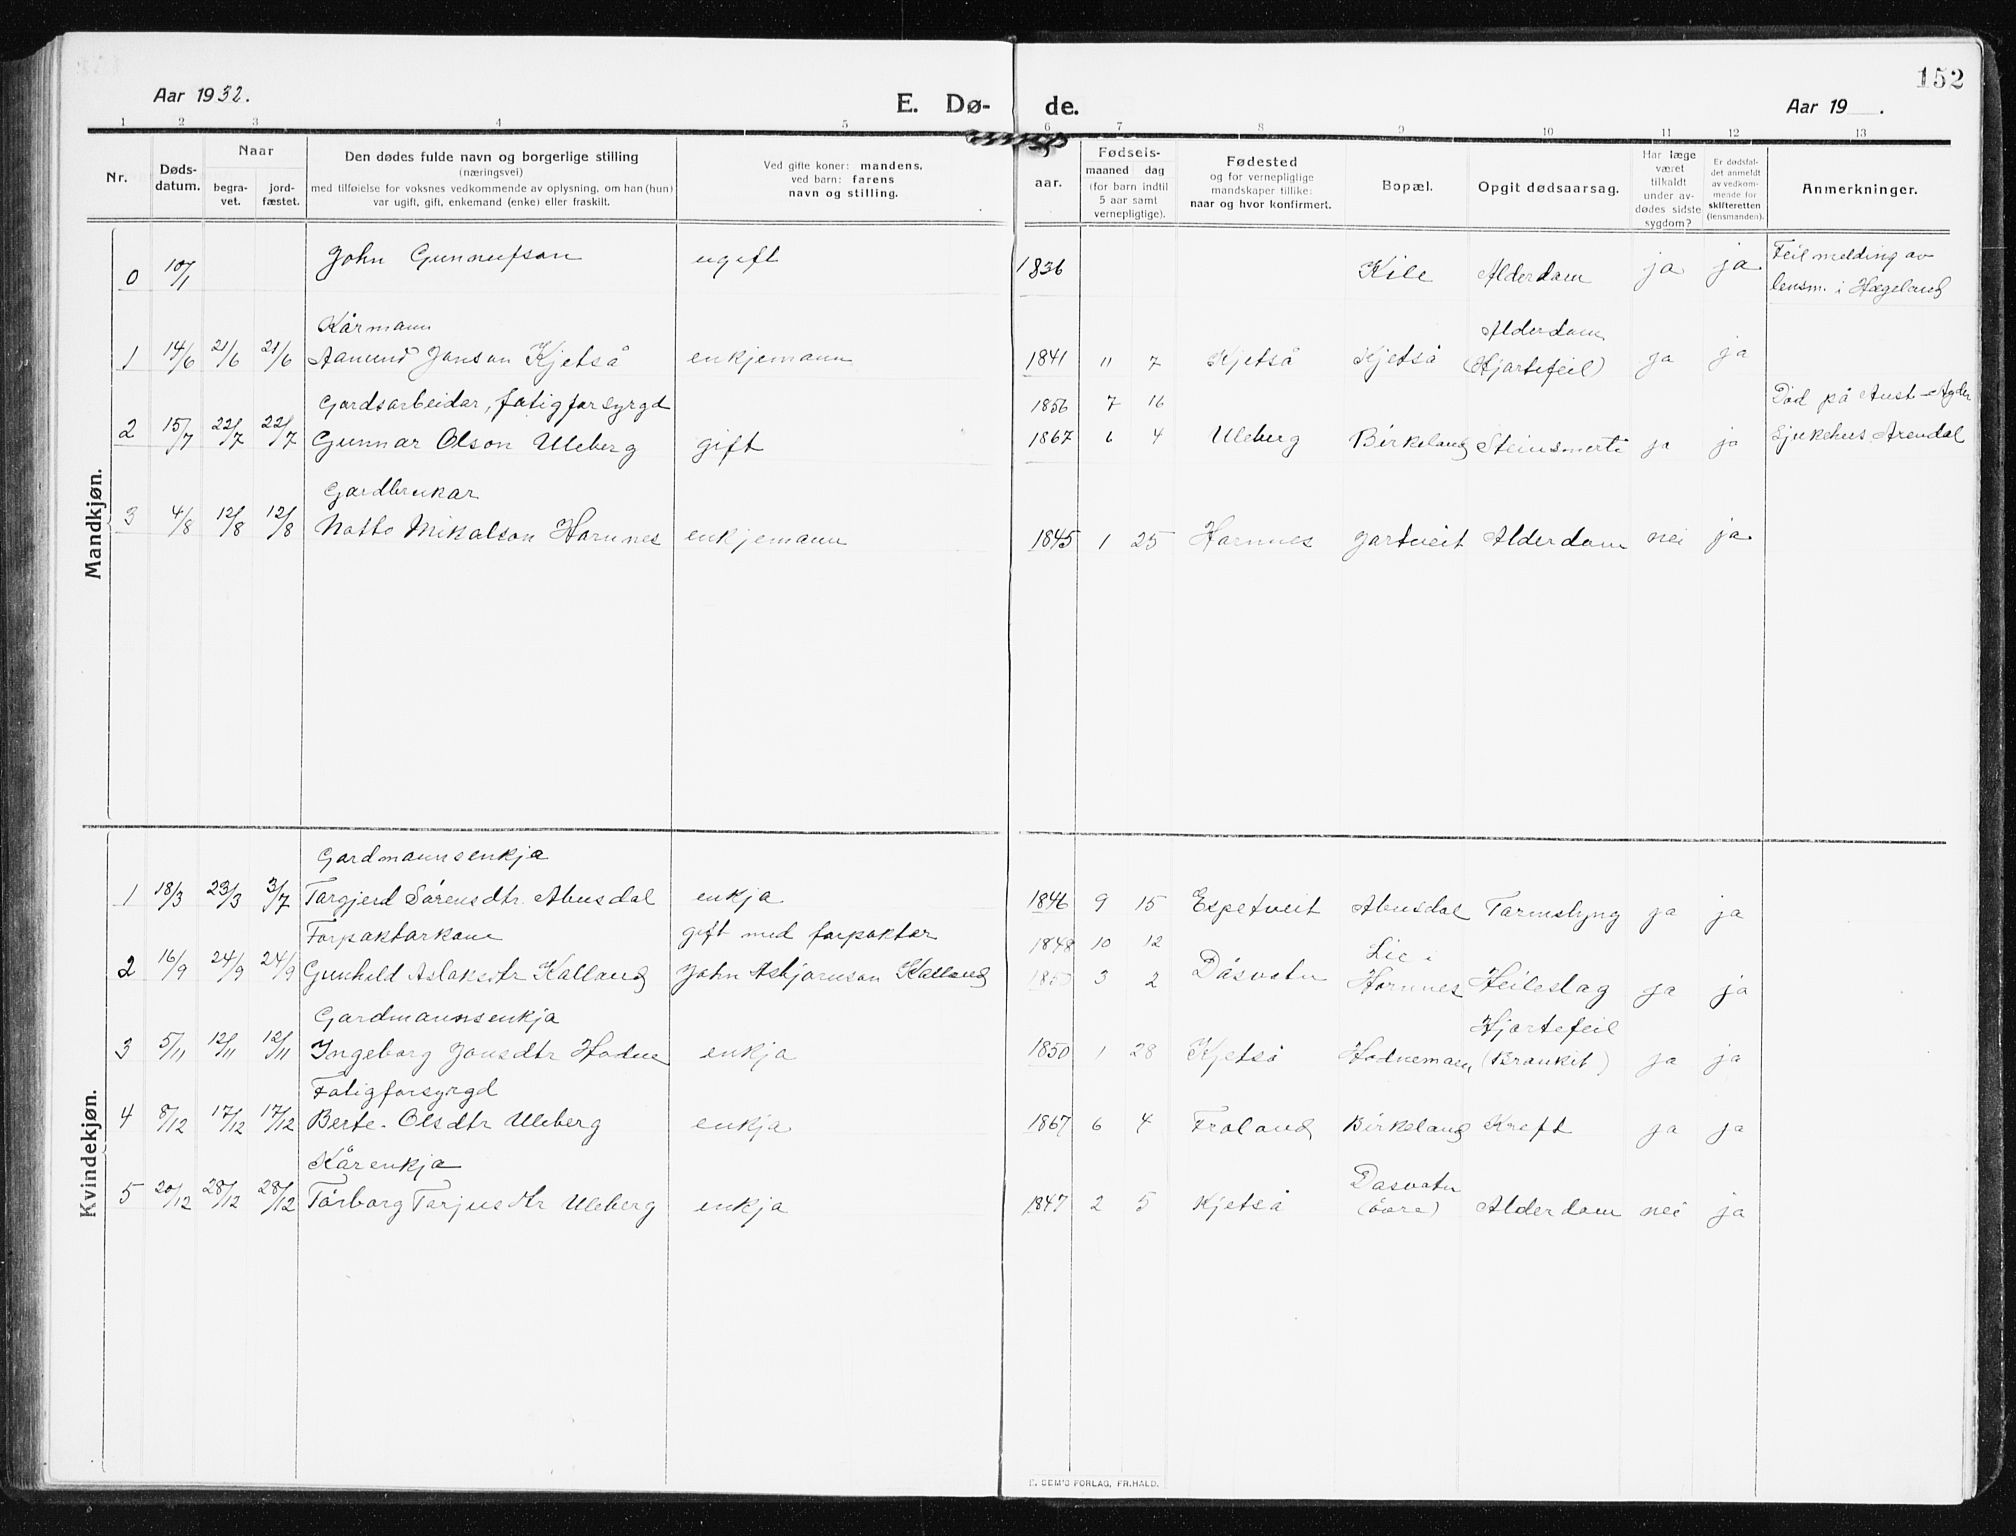 152
Aar 1932.
E. Dø- de.
Aar 19 .
1 2 3 4 5 6 7 8 9 10 11 12 13
Nr.
Døds-
datum.
Naar
begra-
vet.
jord-
fæstet.
Den dødes fulde navn og borgerlige stilling
(næringsvei)
med tilføielse for voksnes vedkommende av oplysning, om han (hun)
var ugift, gift, enkemand (enke) eller fraskilt.
Ved gifte koner: mandens,
ved barn: farens
navn og stilling.
aar.
Fødsels-
maaned dag
(for barn indtil
5 aar samt
vernepligtige).
Fødested
og for vernepligtige
mandskaper tillike:
naar og hvor konfirmert.
Bopæl.
Opgit dødsaarsag.
Har læge
været
tilkaldt
under av-
dødes sidste
sygdom?
Er dødsfal-
det anmeldt
av vedkom-
mende for
skifteretten
(lensmanden).
Anmerkninger.
Mandkjøn.
0 10/1 John Gunnufson ugift 1836 Kile Alderdom ja ja Feilmelding av
lensm. i Hægeland
Kårmann Alderdom
1 14/6 21/6 21/6 Aamund Jonson Kjetså enkjemann 1841 11 7 Kjetså Kjetså (Hjartefeil) ja ja
Gardsarbeidar, fatigforsyrgd 1856 7 16 Død på Aust-Agder
2 15/7 22/7 22/7 Gunnar Olson Uleberg gift 1867 6 4 Uleberg Birkeland Steinsmerte ja ja Sjukehus Arendal
Gardbrukar
3 4/8 12/8 12/8 Notto Mikalson Hornnes enkjemann 1845 1 25 Hornnes Gartveit Alderdom nei ja
Kvindekjøn.
Gardmannsenkja
1 18/3 23/3 3/7 Targjerd Sørensdtr. Abusdal enkja 1846 9 15 Espetveit Abusdal Tarmslyng ja ja
Forpaktarkone gift med forpaktar 1848 10 12 Lie i
2 16/9 24/9 24/9 Gunhild Aslaksdtr Kalland John Asbjørnson Kalland 3 2 Dåsvatn Hornnes Heileslag ja ja
Gardmannsenkja Hjartefeil
3 5/11 12/11 12/11 Ingeborg Jonsdtr Hodne enkja 1850 1 28 Kjetså Hodnemoen (Bronkit) ja ja
Fatigforsyrgd
4 8/12 17/12 17/12 Berte Olsdtr Uleberg enkja 1867 6 4 Froland Birkeland Kreft ja ja
Kårenkja Dåsvatn
5 20/12 28/12 28/12 Torborg Tarjusdtr Uleberg enkja 1847 2 5 Kjetså (övre) Alderdom nei ja
E. SEM'S FORLAG, FR.HALD.